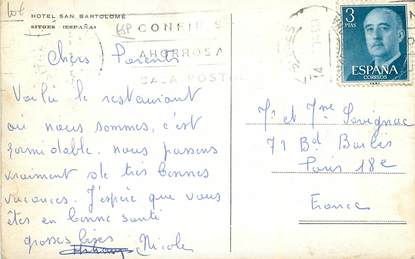 HOTEL SAN BARTOLOMÉ
SITGES (ESPAÑA)
CONFIE S
AHORROS A
CAJA POSTAL
3
PTAS
ESPAÑA
CORREOS
Chers Parents
Voilà le restaurant
où nous sommes, c'est
formidable, nous passons
vraiment de très bonnes
vacances. J'espère que vous
êtes en bonne santé
grosses bises
Nicole
Mr et Mme Savignac
71 Bd Barbès
Paris 18e
France